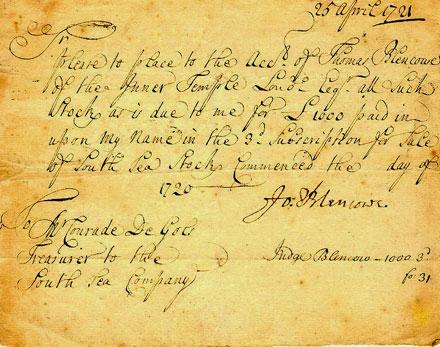 25 April 1721
Sr
Please to place to the Acct. of Thomas Blencowe
Of the Inner Temple Londo. Esqr. all Such
Stock as is due to me for £1000 paid in
upon My Name in the 3d. Subscription for Sale
of South Sea Stock Commenced the day of
1720
Jo: Blencowe
To Mr Conrade De Gols
Treasurer to the
South Sea Company
Judge Blencow – 1000 3d
fo: 31